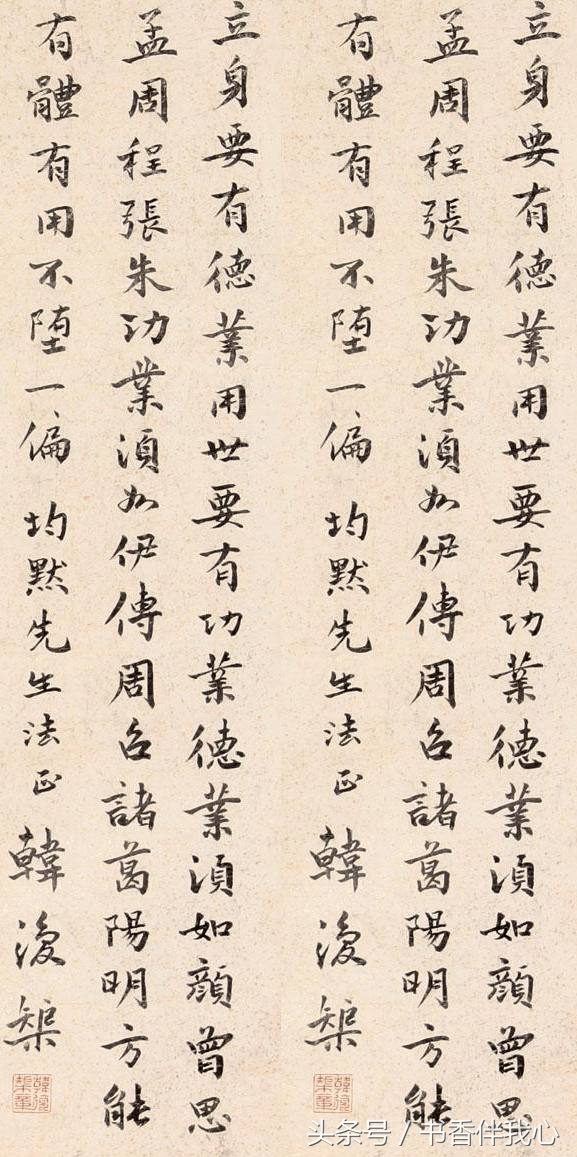 立身要有德業用世要有功業德業須如顏曾思
孟周程張朱功業須如伊傅周召諸葛陽明方能
有體有用不堕一偏 均默先生法正 韓復榘
立身要有德業用世要有功業德業須如顏曾思
孟周程張朱功業須如伊傅周召諸葛陽明方能
有體有用不堕一偏 均默先生法正 韓復榘
头条号 / 书香伴我心